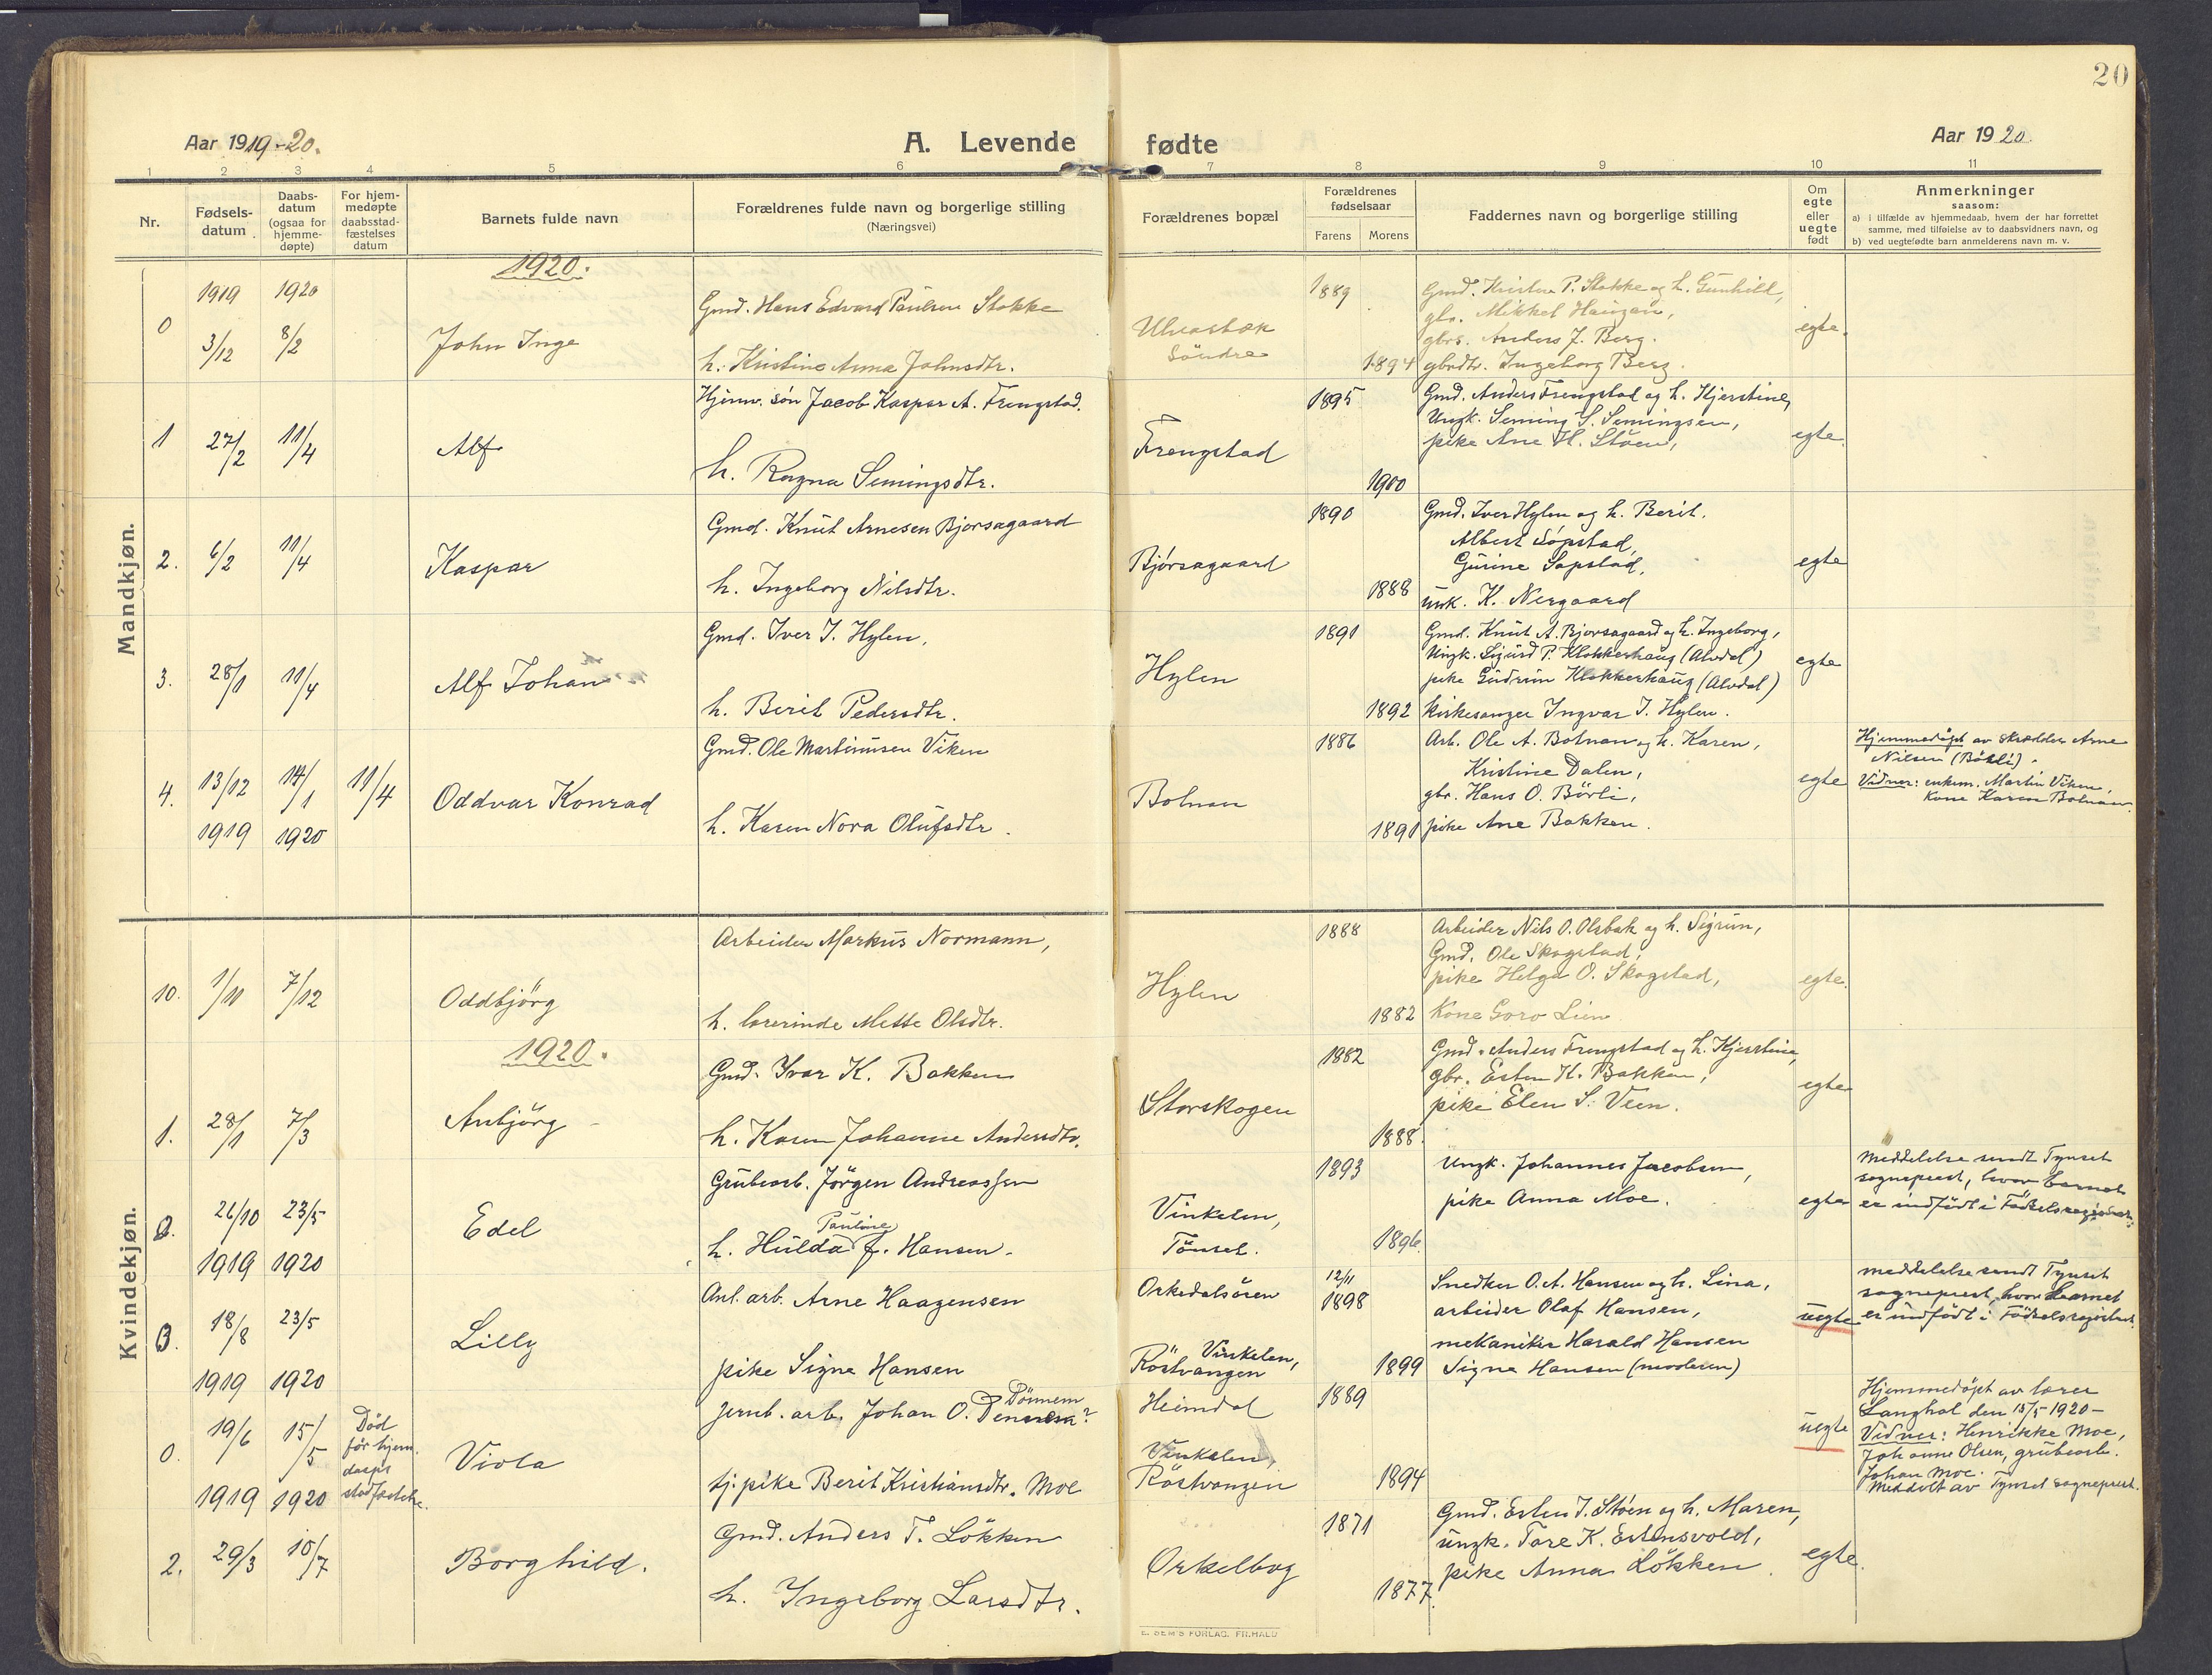 20
Aar 1919-20.
A. Levende fødte
Aar 1920.
1 2 3 4 5 6 7 8 9 10 11
Nr.
Fødsels-
datum
Daabs-
datum
(ogsaa for
hjemme-
døpte)
For hjem-
medøpte
daabsstad-
fæstelses
datum
Barnets fulde navn
Forældrenes fulde navn og borgerlige stilling
(Næringsvei)
Forældrenes bopæl
Forældrenes
fødselsaar
Farens Morens
Faddernes navn og borgerlige stilling
Om
egte
eller
uegte
født
Anmerkninger
saasom:
a) i tilfælde av hjemmedaab, hvem der har forrettet
samme, med tilføielse av to daabsvidners navn, og
b) ved uegtefødte barn anmelderens navn m. v.
Mandkjøn.
1920.
0
1919 1920
3/12 8/2
John Inge
Gmd. Hans Edvard Paulsen Stokke
h. Kristine Anna Johnsdtr.
Søndre
1889
1894
Gmd. P. Stokke og h. Gunhild,
gbr. Mikkel Haugan,
gbrs. Anders J. Berg.
gbrdtr. Ingeborg Berg.
egte.
1
27/2 11/4
Alf
Hjemv. søn Jacob Kaspar A. Frengstad.
h. Ragna Semingsdtr.
Frengstad
1895
1900
Gmd. Anders Frengstad og h. Kjerstine,
Ungk. Seming S. Semingsen,
pike Ane H. Støen,
egte.
2.
6/2 11/4
Kaspar
Gmd. Knut Arnesen Bjørsagaard
h. Ingeborg Nilsdtr.
Bjørsagaard
1890
1888
Gmd. Iver Hylen og h. Berit.
Albert Søpstad,
Gurine Søpstad,
K. Nergaard
egte
3.
28/1 11/4
Alf Johan
Gmd. Iver J. Hylen,
h. Berit Pedersdtr.
Hylen
1891
1892
Gmd. Knut A. Bjørsagaard og h. Ingeborg,
Ungk. Sigurd P. Klokkerhaug (Alvdal)
pike Gudrun Klokkerhaug (Alvdal)
kirkesanger Ingvar J. Hylen.
egte
4.
13/12 14/1 11/4
1919 1920
Oddvar Konrad
Gmd. Ole Martinusen Viken
h. Karen Nora Olufsdtr.
Bolnan
1886
1891
Arb. Ole A. Bolnan og h. Karen,
Kristine Dalen,
gbr. Hans O. Börli,
pike Ane Bakken.
egte
Hjemmedøpt av skrædder Arne
Nilsen (Bösli).
Vidner: enkem. Martin Viken,
kone Karen Bolnan.
Kvindekjøn.
10.
1/11 7/12
Oddbjörg
Arbeider Markus Normann,
h. lærerinde Mette Olsdtr.
Hylen
1888
1882
Arbeider Nils O. Olsbak og h. Sigrun,
Gmd. Ole Skogstad,
pike Helga O. Skogstad,
Kone Goro Lien
egte.
1920.
1.
28/1 7/3
Anbjörg
Gmd. Ivar K. Bakken
h. Karen Johanne Andersdtr.
Storskogen
1882
1888.
Gmd. Anders Frengstad og h. Kjerstine,
gbr. Esten K. Bakken,
pike Elen S. Veen.
egte
26/10 23/5
1919 1920
Edel
Grubearb. Jörgen Andreassen
h. Hulda Pauline f. Hansen.
Vinkelen,
Tönset.
1893
1896.
Ungk. Johannes Jacobsen,
pike Anna Moe.
egte
Meddelelse sendt Tynset
sogneprest, hvor barnet
er indfødt i Fødselsregistret.
18/8 23/5
1919 1920
Lilly
Anl. arb. Arne Haagensen
pike Signe Hansen
Orkedalsören
Vinkelen,
Röstvangen
12/11
1898
1899
Snedker O. A. Hansen og h. Lina,
arbeider Olaf Hansen,
mekaniker Harald Hansen
Signe Hansen (moderen)
uegte
meddelelse sendt Tynset
sogneprest, hvor barnet
er indfødt i Fødselsregistret.
0.
19/6 15/5
1919 1920
Död
før hjem.
daaps
stadfæstelse.
Viola
Jernb. arb. Johan O. Dönnem?
tj. pike Berit Kristiansdtr. Moe
Heimdal
Vinkelen,
Röstvangen
1889
1894
uegte
Hjemmedöpt av lærer
Langhol den 15/5 1920 -
Vidner: Henrikke Moe,
Johanne Olsen, grubearb.
Johan Moe.
Meddelt av Tynset sogneprest.
2.
29/3 10/7
Borghild.
Gmd. Anders T. Lökken
h. Ingeborg Larsdtr.
Orkelbog
1871
1877.
Gmd. Esten J. Støen og h. Maren,
ungk. Tore K. Estensvold,
pike Anna Lökken.
egte.
E. SEM'S FORLAG, FR.HALD